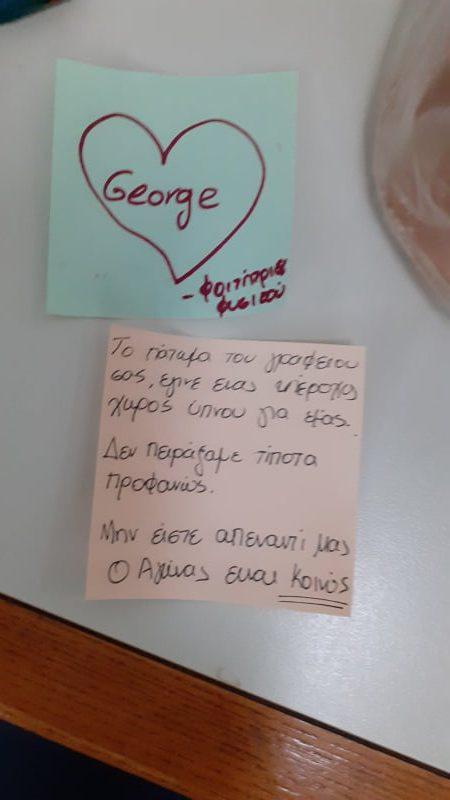 George
- Φοιτήτριες
φυσικού
Το πάτωμα του γραφείου
σας, έγινε ένας υπέροχος
χώρος ύπνου για εμάς.
Δεν πειράξαμε τίποτα
προφανώς.
Μην είστε απέναντί μας
Ο Αγώνας είναι κοινός